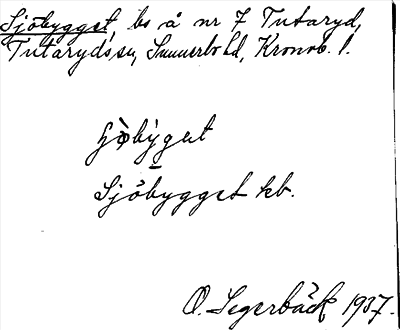 Sjöbygget, bs å nr 7 Tutaryd,
Tutaryds sn, Sunnerbo hd, Kronob. l.
Sjöbygget kb.
O. Segerbäck 1937.